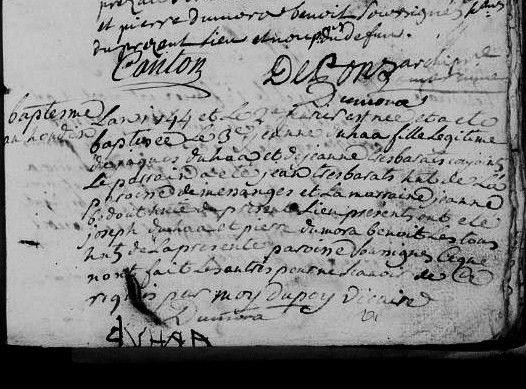 et pierre dumora benoit soussignés
du present Lieu et nous
Canton Delons archip
Dumora
baptesme Lan 1744 et Le 2e est née et a eté
baptisée Le 3e jeanne duhaa fille Legitime
de jaques duhaa et de jeanne Lesbarats
Le parrain a eté jean Lesbarats hat de La
paroisse de mesanges et La marraine jeanne
bidou hate du present Lieu presents ont eté
joseph duhaa et pierre dumora benoit Les tous
hats de La presente paroisse soussignés Ce que
nont fait Les autres pour ne scavoir de Ce
requis par moy dupoy Vicaire
Dumora
DUHAA